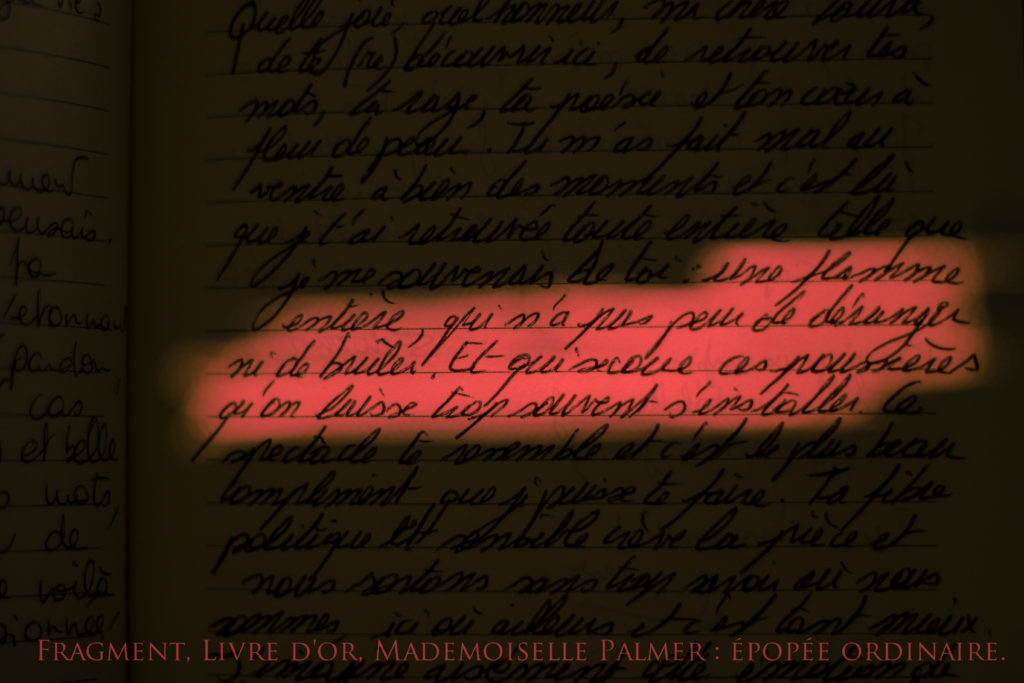 Quelle joie, quel honneur, ma chère Laura,
de te (re)découvrir ici, de retrouver tes
mots, ta rage, ta poésie et ton cœur à
fleur de peau. Tu m'as fait mal au
ventre à bien des moments et c'est là
que j't'ai retrouvée toute entière telle que
je me souvenais de toi : une flamme
entière, qui n'a pas peur de déranger
ni de brûler. Et qui secoue ces poussières
qu'on laisse trop souvent s'installer. Ce
spectacle te ressemble et c'est le plus beau
compliment que j'puisse te faire. Ta fibre
politique et sensible crève la pièce et
nous sortons sans trop savoir où nous
sommes, ici ou ailleurs et c'est tant mieux.
J'imagine aisément que
pensais.
pardon,
cas
et belle
mots,
de
voilà
FRAGMENT, LIVRE D'OR, MADEMOISELLE PALMER : ÉPOPÉE ORDINAIRE.